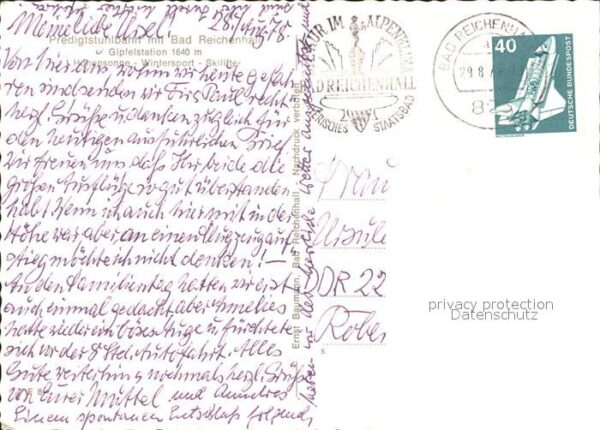 Meine liebe Ursel! 28. Aug. 78.
Predigtstuhlbahn mit Bad Reichenhall
Gipfelstation 1640 m
Höhensonne - Wintersport - Skilifte
Von hier aus, wohin wir heute gefah-
ren sind senden wir Dir, Paul recht
herzl. Grüße u. danken zugleich für
den heutigen ausführlichen Brief.
Wir freuen uns, daß Ihr beide die
großen Ausflüge so gut überstanden
habt. Wenn ich auch hier mit in der
Höhe war, aber an einen Flugzeugauf-
stieg möchte ich nicht denken! —
An den Familientag hatten wir erst
auch einmal gedacht aber
hatte wieder ein böses Auge u. fürchtete
sich vor der 8 Std. Autofahrt. Alles
Gute weiterhin u. nochmals herzl. Grüße
von Eurer Mutti und
Einem spontanen Entschluß folgend,
haben wir das herrliche Wetter
Ernst Baumann, Bad Reichenhall Nachdruck verboten
KUR IM ALPENKLIMA
BAD REICHENHALL
BAYERISCHES STAATSBAD
BAD REICHENHALL
29.8.
40
DEUTSCHE BUNDESPOST
Frau
Ursula
DDR 22
Röbe
privacy protection
Datenschutz